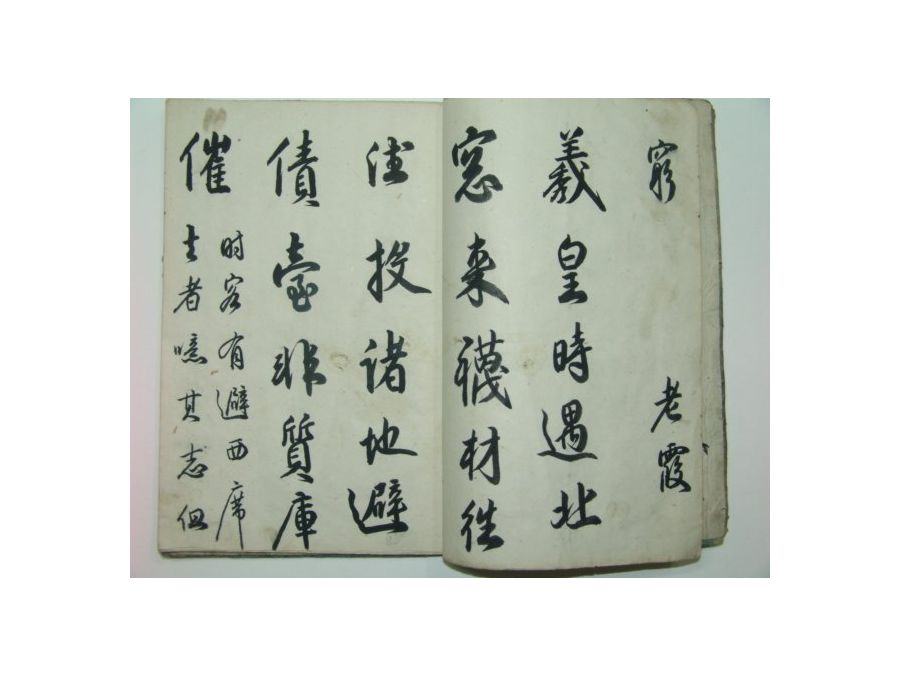 窮 老霞
羲皇時遇北
窓來襪材往
往投諸地避
債臺非質庫
催
时客有避西席
去者噫其志但